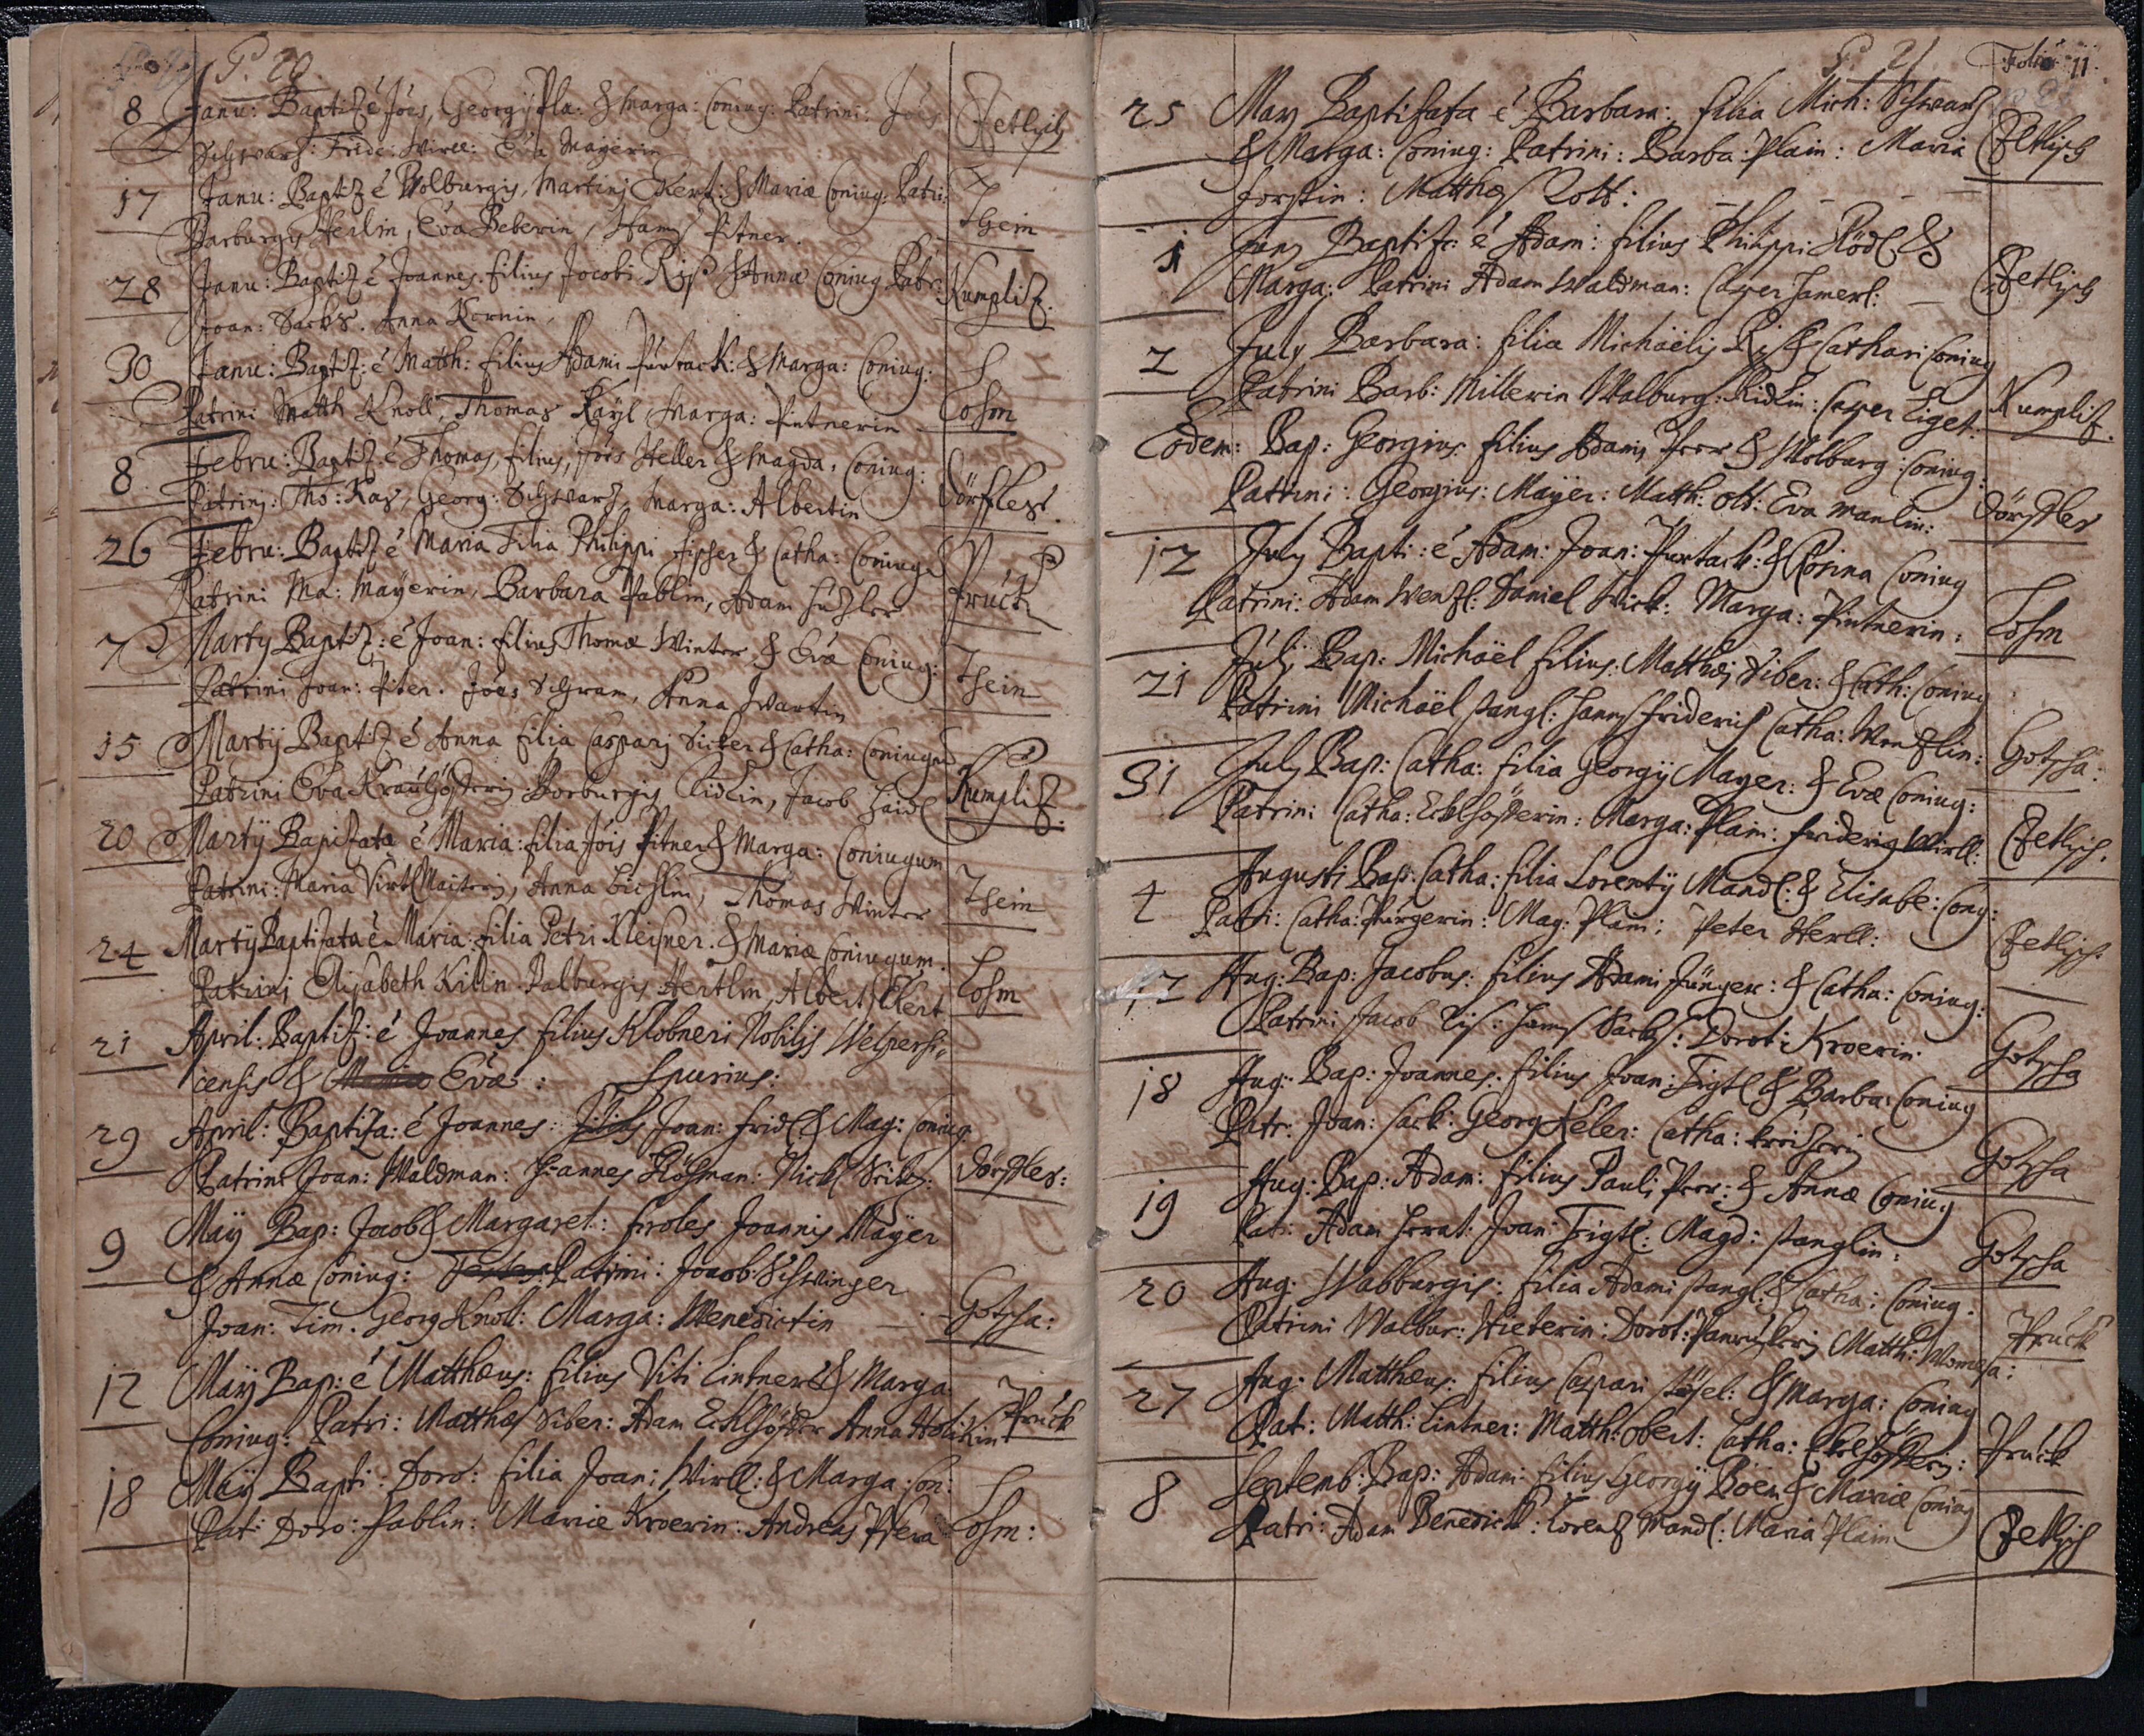 P. 20
8 Janu: Baptiz é Jões, Georgÿ Pla: & Marga: Coniug: Patrini: Jões Zetlisch
Schwarz: Fride: Wirll: Eva Mayerin
17 Janu: Baptiz é Wolburgis, Martinj Ekert: & Mariæ Coniug: Patri: Thein
Barburgis Herlin, Eva Beberin, Hanß Pitner.
28 Janu: Baptiz é Joannes. filius Jacobi Riß & Annæ Coniug. Patr: Kumpliz.
Joan: Sachs. Anna Kornin.
30 Janu: Bapt: é Matth: filius Adami Purtack: & Marga: Coniug:
Patrini Matth Knoll, Thomas Kayl, Marga: Pintnerin Lohm
8 Febru: Baptiz é Thomas, filius, Jõis Heller & Magda: Coniug:
Patrinj: Tho: Kas, Georg: Schwarz, Marga: Albertin Dörffles.
26 Febru: Baptiz é Maria Filia Philippi Fischer & Catha: Coniugū
Patrini Ma: Mayerin, Barbara Pablin, Adam Pruck
7 Martÿ Baptiz: é Joan: filius Thomæ Winter & Evæ Coniug:
Patrini Joan: Piter. Jões Schram, Anna Wartin Thein
15 Martÿ Baptiz é Anna filia Casparj Siber & Catha: Coniugū
Patrini Eva Borburgis Ridlin, Jacob Haidl Kumpliz.
20 Martÿ Baptizata é Maria: filia Jõis Pitner & Marga: Coniugum
Patrini: Maria Anna Thomas Winter Thein
24 Martÿ Baptizata é Maria: filia Petri Kleisner. & Mariæ Coniugum.
Patrinj Elisabeth Kilin Balburgis Hertlin, Albert Ekert Lohm
21 April: Baptiz: é Joannes filius Klobneri Nobilis Welpersi,
censis & Mariæ Evæ: Spurius:
29 April: Baptiza: é Joannes: Filius Joan: Fridl & Mag: Coniug
Patrini Joan: Waldman: Joannes Hößman: Nickl Dörffles:
9 Maÿ Bap: Jacob & Margaret: Proles Joannis Mayer
& Annæ Coniug: Testes: Patrini: Jacob: Schwinger
Joan: Tim. Georg Knol: Marga: Wenedictin Gotscha:
12 Maÿ Bap: é Matthæus: filius Viti Lintner & Marga:
Coniug: Patri: Matthes Siber: Adam Anna Pruck
18 Maÿ Bapti: Doro: filia Joan: Wirll: & Marga: Con:
Pat: Doro: Pablin: Mariæ Kroerin: Andreas Lohm:
P. 21 Folio 11.
25 May Baptisata é Barbara: filia Mich: Schwarz
& Marga: Coniug: Patrini: Barba: Plain: Maria Zetlisch
Forstin: Matthes Lott:
1 Juny Baptiz: é Adam: filius Philippi Rödl &
Marga: Patrini Adam Waldman: Casper Hamerl: Zetlisch
2 July Barbara: filia Michaëlis Riß & Cathari Coniug
Patrini Barb: Millerin Walburg: Ridlin: Casper Liget: Kumpliz.
Eodem: Bap: Georgius filius Adami & Wolburg: Coniug:
Patrini: Georgius: Mayer: Matth: Ott: Eva Manlin: Dörffles
12 July Bapti: é Adam: Joan: Purtack: & Rosina Coniug
Patrini: Adam Wenzl: Daniel Marga: Pintnerin: Lohm
21 Julÿ Bap: Michaël filius: Matthæi Siber: & Cath: Coniug
Patrini Michaël Stangl: Hanns Friderich Catha: Wenzlin: Gotscha:
31 July Bap: Catha: filia Georgÿ Mayer: & Evæ Coniug:
Patrini Catha: Marga: Plain: Friderig Wirll: Zetlisch.
4 Augusti Bap: Catha: filia Lorentÿ Mandl: & Elisabe: Cong:
Patri: Catha: Pürgerin: Mag: Plain: Peter Herll: Zetlisch
12 Aug: Bap: Jacobus: filius Adami Jünger: & Catha: Coniug:
Patrini Jacob Riß: Hanß Sachs: Dorot: Kroerin: Gotscha
18 Aug: Bap: Joannes: filius Joan: Frigtl & Barba: Coniug
Patr: Joan: Sack: Georg Keler: Catha: Gotscha
19 Aug: Bap: Adam: filius Pauli & Annæ Coniug
Patr: Adam Joan: Frigtl: Magd: Stanglin: Gotscha
20 Aug: Walburgis: filia Adami Stangl: & Catha: Coniug.
Patrini Walbur: Dorot: Matth: Pruck
27 Aug: Matthæus: filius Caspari & Marga: Coniug
Pat: Matth: Lintner: Matth: Obert: Catha: Pruck
8 Septemb: Bap: Adam: filius Georgÿ Böem & Mariæ Coniug
Patri: Adam Benedickt: Lorenz Mandl: Maria Plain Zetlisch